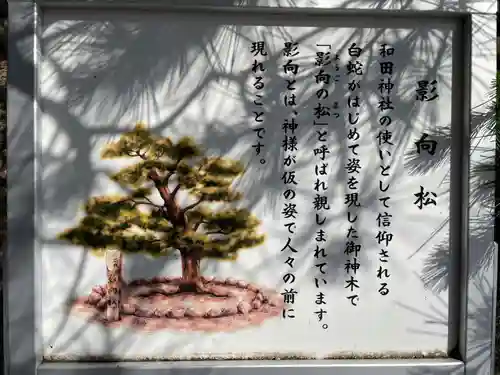 影向松
和田神社の使いとして信仰される
白蛇がはじめて姿を現した御神木で
ようごう まつ
「影向の松」と呼ばれ親しまれています。
影向とは、神様が仮の姿で人々の前に
現れることです。